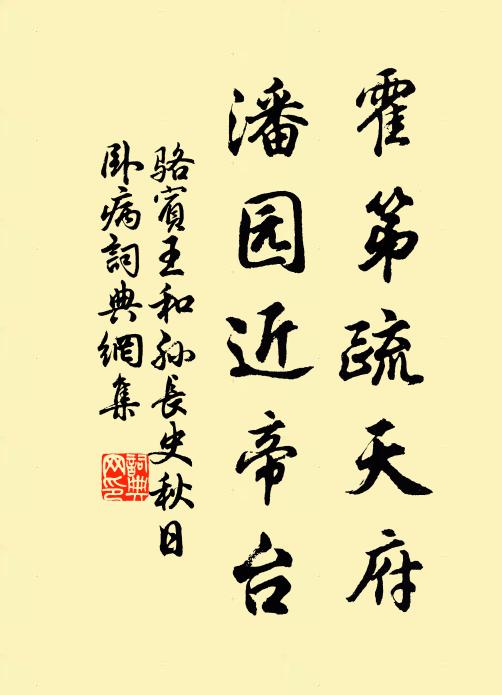 霍第疏天府
潘园近帝台
骆賓王和孙長史秋日
卧病詞典網集
詞典网印